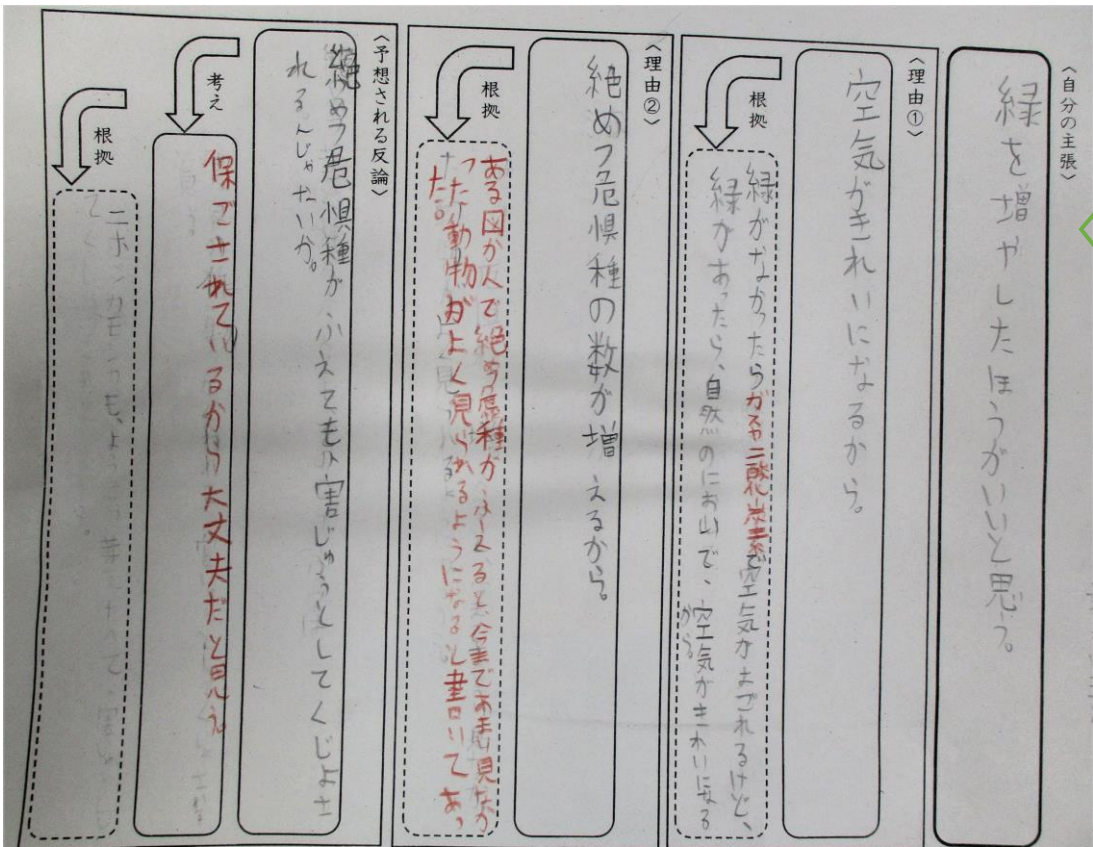 〈自分の主張〉
緑を増やしたほうがいいと思う。
〈理由①〉
空気がきれいになるから。
根拠
緑がなかったらガスや二酸化炭素で空気がよごれるけど、
緑があったら、自然のにおいで、空気がきれいになる
から。
〈理由②〉
絶めつ危惧種の数が増えるから。
根拠
ある図か人で絶めつ危惧種がふえると、今まであまり見なか
った動物がよく見られるようになると書いてあっ
た。
〈予想される反論〉
絶めつ危惧種がふえても、害じゅうとしてくじょさ
れるんじゃないか。
考え
保ごされているから大丈夫だと思う。
根拠
ニホンカモシカも、